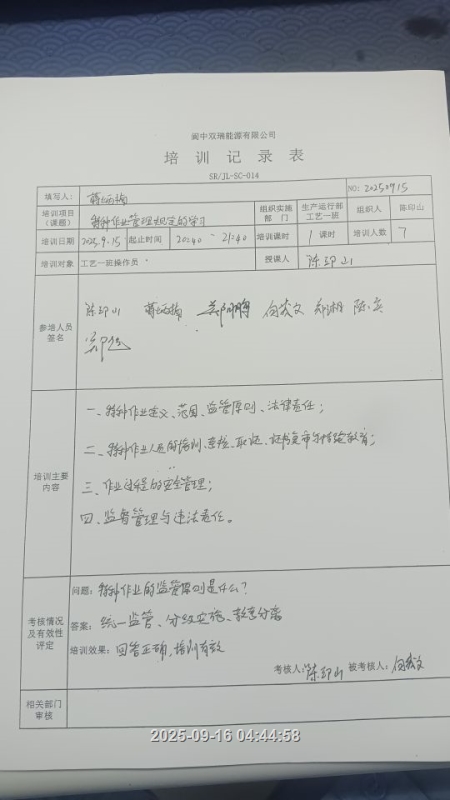 阆中双瑞能源有限公司
培 训 记 录 表
SR/JL-SC-014
填写人： NO: 20250915
培训项目（课题） 特种作业管理规定的学习 组织实施部 门 生产运行部工艺一班 组织人 陈印山
培训日期 2025.9.15 起止时间 20:40 - 21:40 培训课时 1 课时 培训人数 7
培训对象 工艺一班操作员 授课人 陈印山
参培人员签名 陈印山
培训主要内容
一、特种作业定义、范围、监管原则、法律责任；
二、特种作业人员的培训、考核、取证、证书复审与继续教育；
三、作业过程的安全管理；
四、监督管理与违法责任。
考核情况及有效性评定
问题：特种作业的监管原则是什么？
答案：统一监管、分级实施、教考分离
培训效果：回答正确，培训有效
考核人：陈印山 被考核人：
相关部门审核
2025-09-16 04:44:58